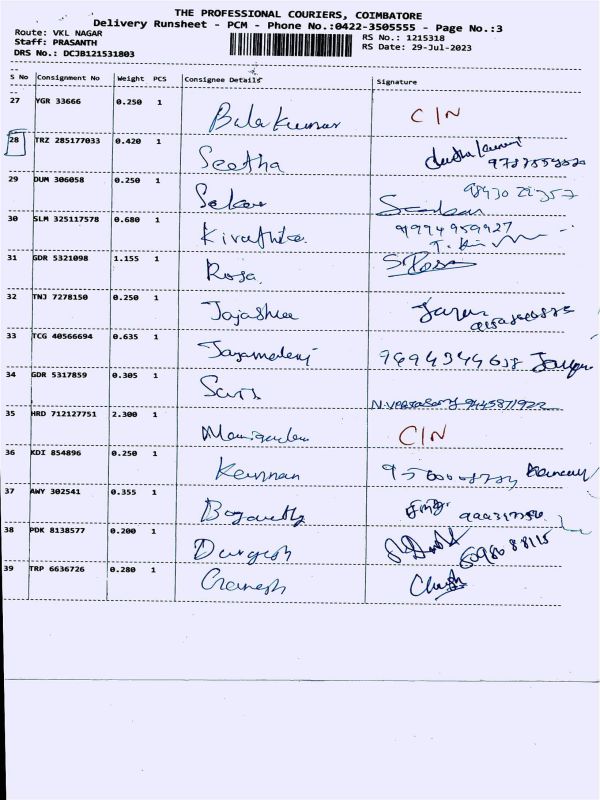 THE PROFESSIONAL COURIERS, COIMBATORE
Delivery Runsheet - PCM - Phone No.:0422-3505555 - Page No.:3
Route: VKL NAGAR RS No.: 1215318
Staff: PRASANTH RS Date: 29-Jul-2023
DRS No.: DCJB121531803
S No Consignment No Weight PCS Consignee Details Signature
27 YGR 33666 0.250 1 Balakumar CIN
28 TRZ 285177033 0.420 1 Seetha
29 DUM 306058 0.250 1 Sekar
30 SLM 325117578 0.680 1 Kiruthika. 9994959927
31 GDR 5321098 1.155 1 Rosa. S Rosa
32 TNJ 7278150 0.250 1 Jajashree
33 TCG 40566694 0.635 1
34 GDR 5317859 0.305 1
35 HRD 712127751 2.300 1 CIN
36 KDI 854896 0.250 1 Kannan
37 AWY 302541 0.355 1
38 PDK 8138577 0.200 1 Durgesh
39 TRP 6636726 0.280 1 Ganesh